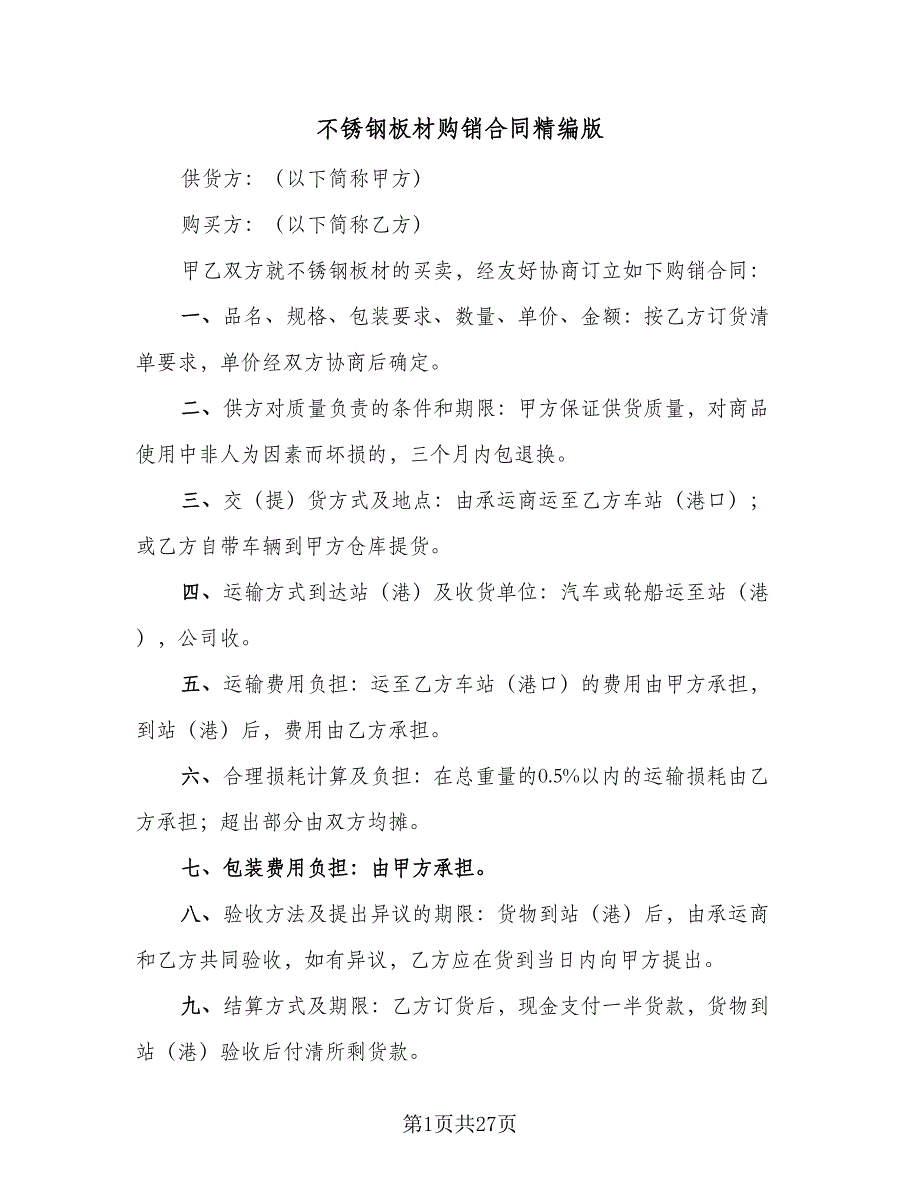 不锈钢板材购销合同精编版
供货方：（以下简称甲方）
购买方：（以下简称乙方）
甲乙双方就不锈钢板材的买卖，经友好协商订立如下购销合同：
一、品名、规格、包装要求、数量、单价、金额：按乙方订货清
单要求，单价经双方协商后确定。
二、供方对质量负责的条件和期限：甲方保证供货质量，对商品
使用中非人为因素而坏损的，三个月内包退换。
三、交（提）货方式及地点：由承运商运至乙方车站（港口）；
或乙方自带车辆到甲方仓库提货。
四、运输方式到达站（港）及收货单位：汽车或轮船运至站（港
），公司收。
五、运输费用负担：运至乙方车站（港口）的费用由甲方承担，
到站（港）后，费用由乙方承担。
六、合理损耗计算及负担：在总重量的0.5%以内的运输损耗由乙
方承担；超出部分由双方均摊。
七、包装费用负担：由甲方承担。
八、验收方法及提出异议的期限：货物到站（港）后，由承运商
和乙方共同验收，如有异议，乙方应在货到当日内向甲方提出。
九、结算方式及期限：乙方订货后，现金支付一半货款，货物到
站（港）验收后付清所剩货款。
第1页共27页